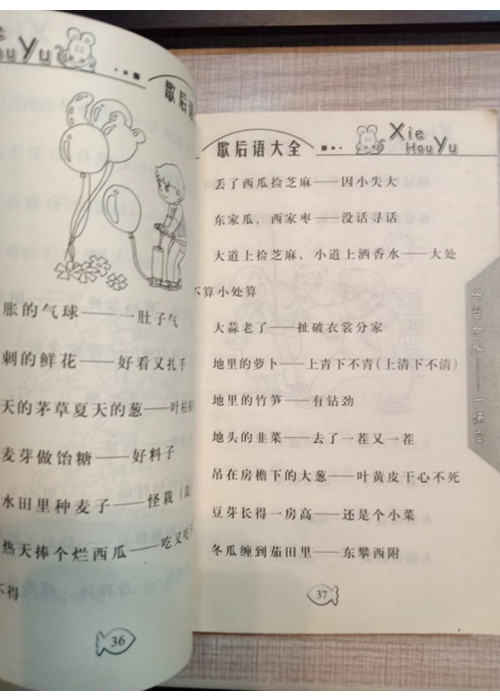 ouYu
歇后
胀的气球——一肚子气
刺的鲜花——好看又扎手
天的茅草夏天的葱——叶枯
麦芽做饴糖——好料子
水田里种麦子——怪栽
热天捧个烂西瓜——吃又吃
不得
36
歇后语大全
Xie
HouYu
丢了西瓜捡芝麻——因小失大
东家瓜，西家枣——没话寻话
大道上捡芝麻，小道上洒香水——大处
不算小处算
大蒜老了——扯破衣裳分家
地里的萝卜——上青下不青(上清下不清)
地里的竹笋——有钻劲
地头的韭菜——去了一茬又一茬
吊在房檐下的大葱——叶黄皮干心不死
豆芽长得一房高——还是个小菜
冬瓜缠到茄田里——东攀西附
37